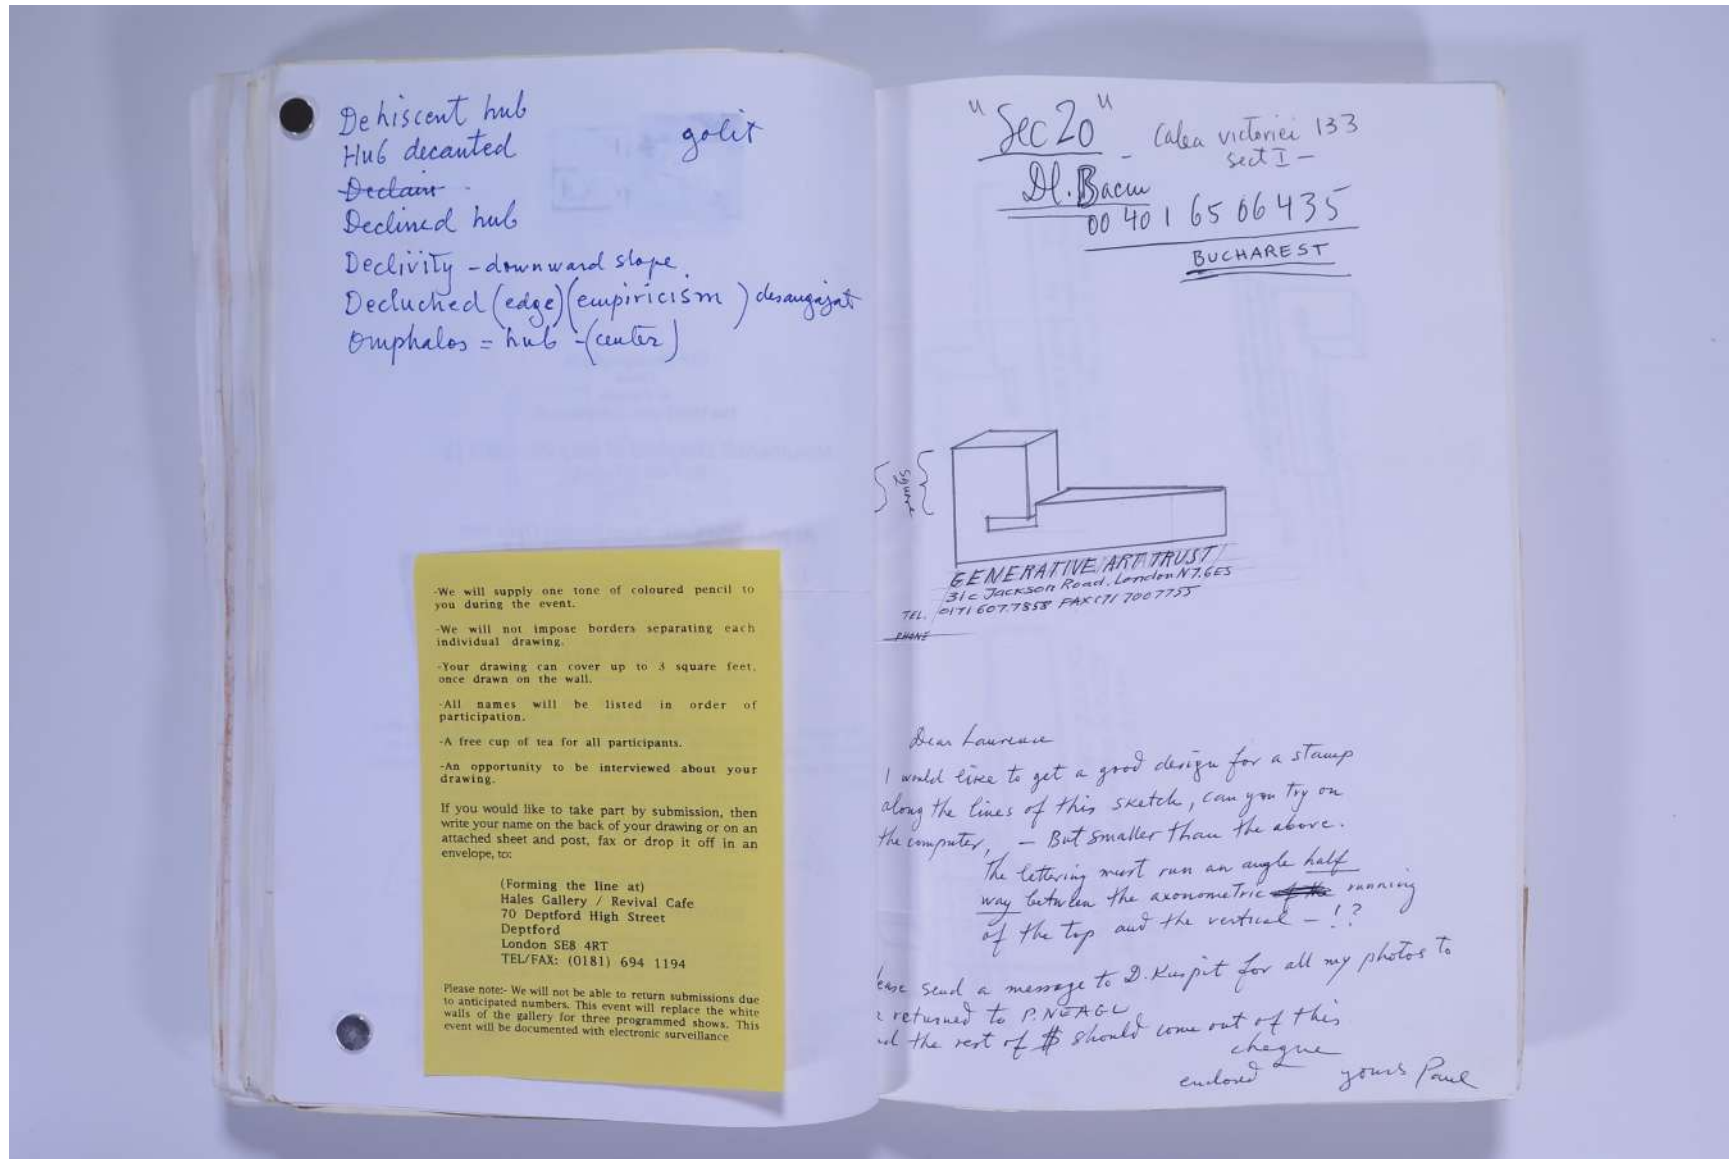 Dehiscent hub
golit
Hub decanted
Declain
Declined hub
Declivity - downward slope.
Decluched (edge) (empiricism) desangajat
Omphalos = hub - (center)
-We will supply one tone of coloured pencil to
you during the event.
-We will not impose borders separating each
individual drawing.
-Your drawing can cover up to 3 square feet,
once drawn on the wall.
-All names will be listed in order of
participation.
-A free cup of tea for all participants.
-An opportunity to be interviewed about your
drawing.
If you would like to take part by submission, then
write your name on the back of your drawing or on an
attached sheet and post, fax or drop it off in an
envelope, to:
(Forming the line at)
Hales Gallery / Revival Cafe
70 Deptford High Street
Deptford
London SE8 4RT
TEL/FAX: (0181) 694 1194
Please note:- We will not be able to return submissions due
to anticipated numbers. This event will replace the white
walls of the gallery for three programmed shows. This
event will be documented with electronic surveillance
"Sec 20"
- Calea victoriei 133
sect I -
Dl. Bacu
00 40 1 65 06 435
BUCHAREST
square
GENERATIVE ART TRUST
31c Jackson Road. London N7.6ES
TEL. 0171 607.7858 FAX 0171 7007755
PHONE
Dear Laurence
I would like to get a good design for a stamp
along the lines of this sketch, can you try on
the computer, - But smaller than the above.
The lettering must run an angle half
way between the axonometric running
of the top and the vertical - !?
ease send a message to D. Kuspit for all my photos to
returned to P. NEAGU
the rest of $ should come out of this
cheque
enclosed yours Paul